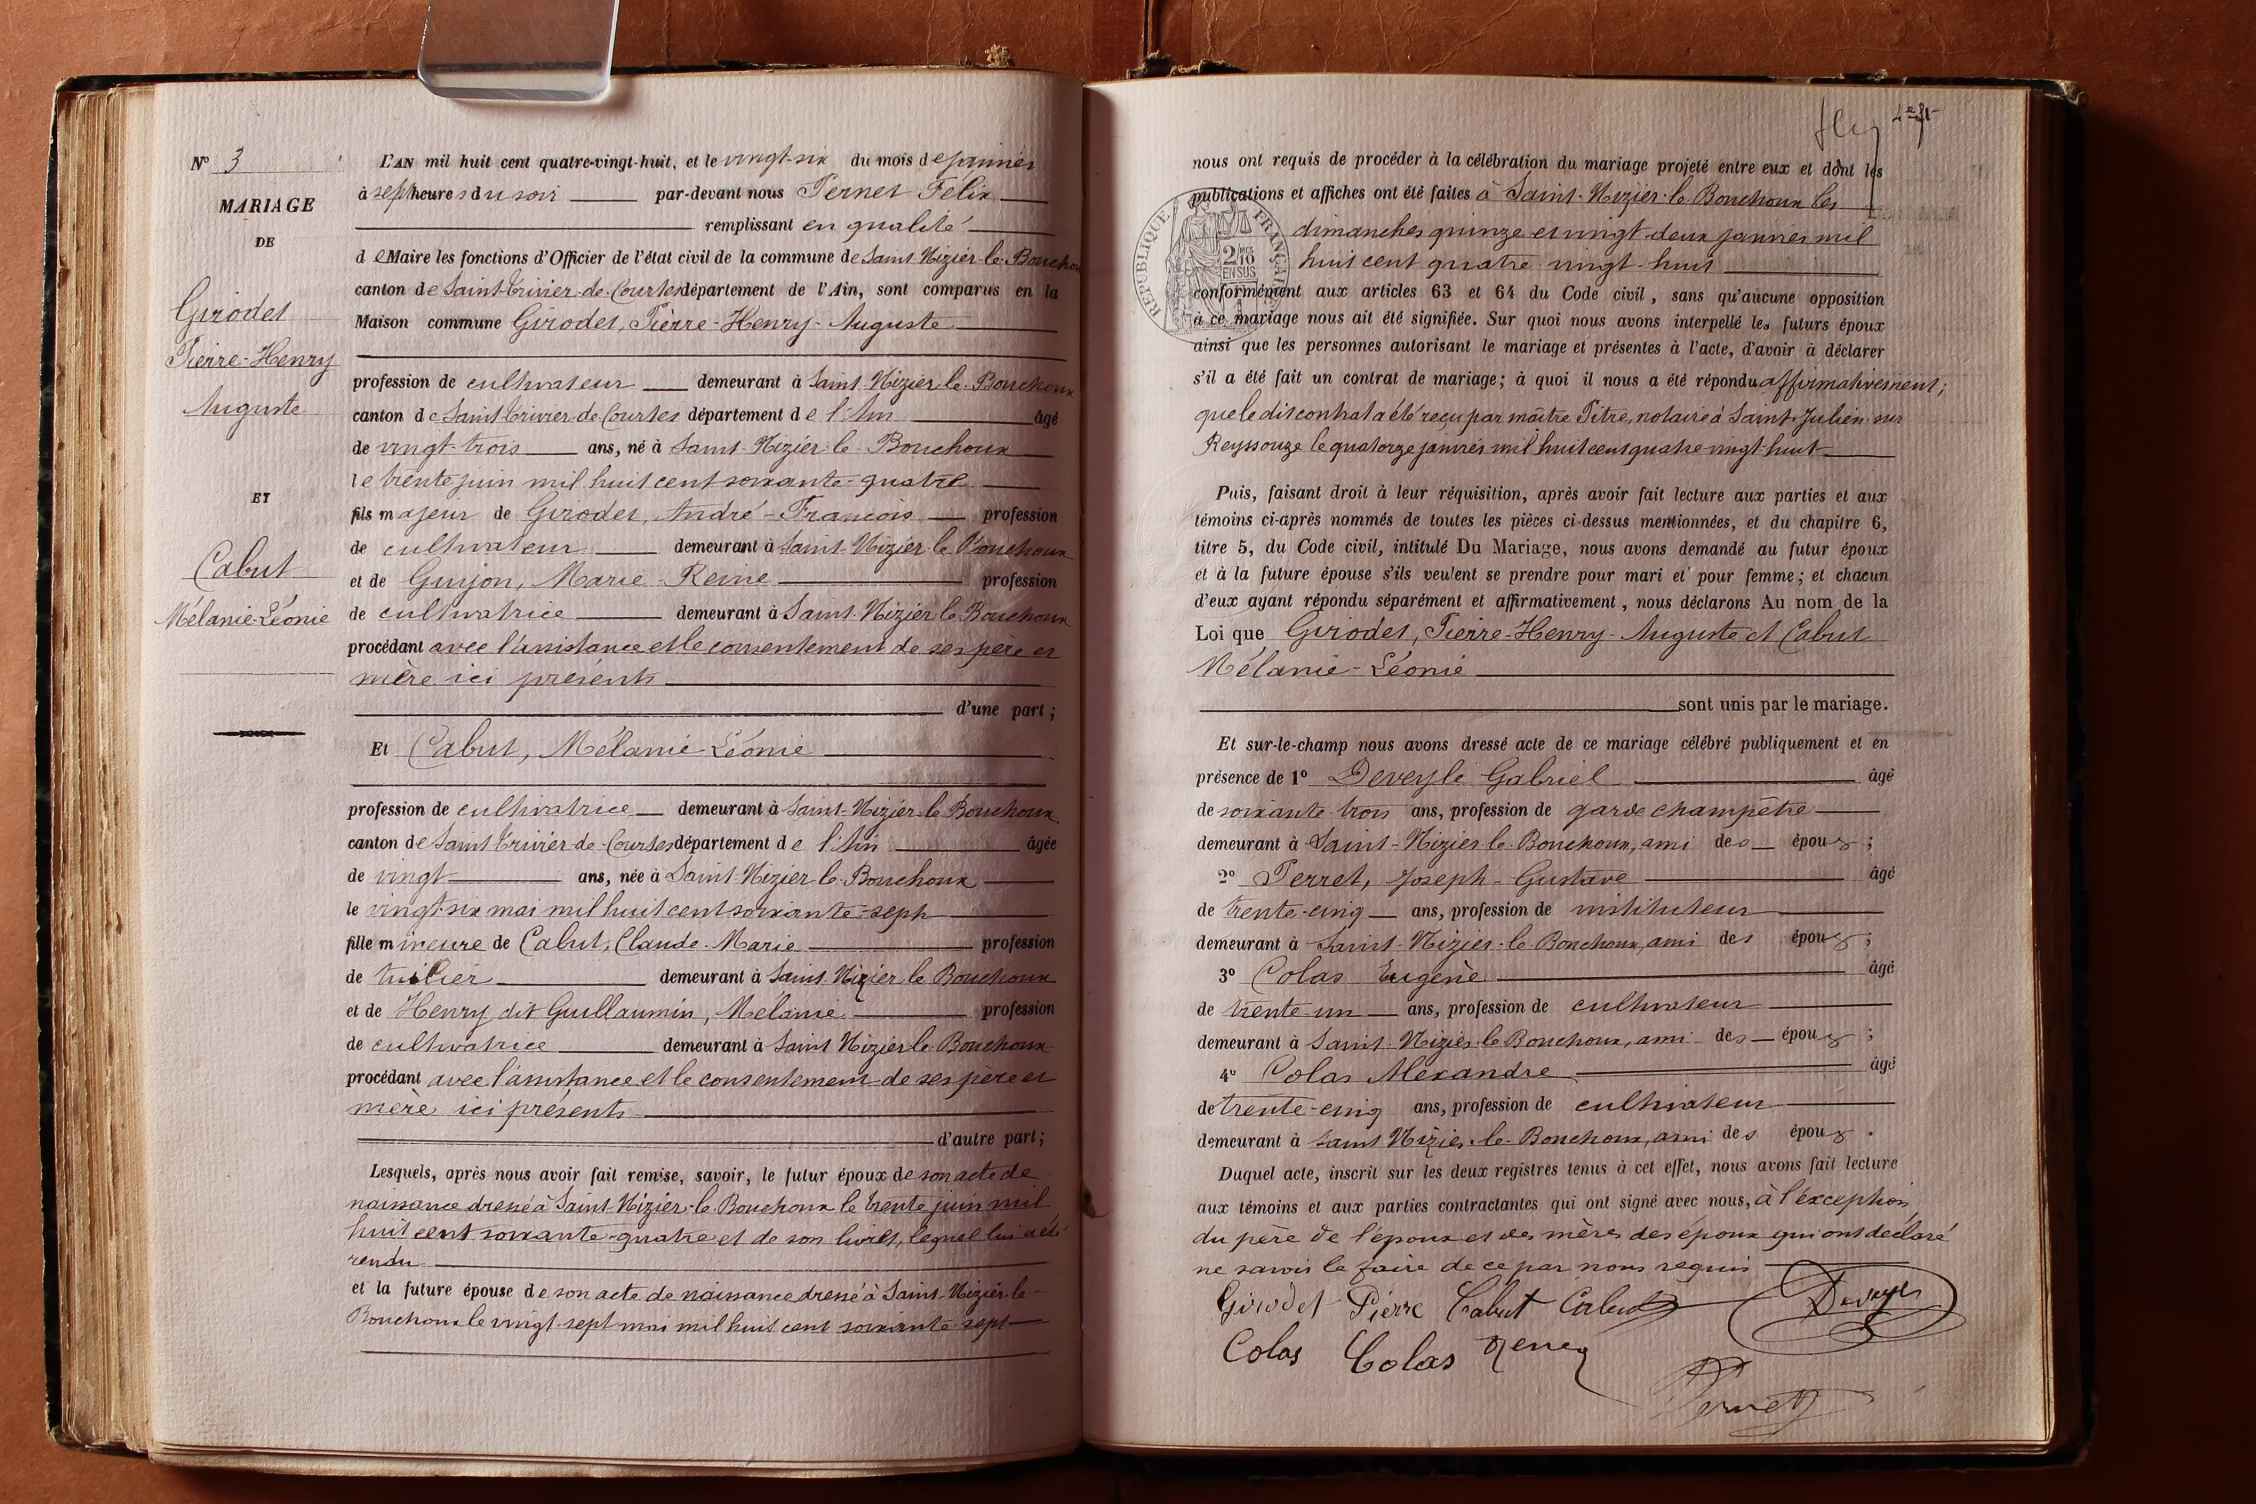 N° 3
MARIAGE
DE
Girodet
Pierre-Henry
Auguste
ET
Cabut
Mélanie-Léonie
L'AN mil huit cent quatre-vingt-huit, et le vingt-six du mois de janvier
à sept heures du soir par-devant nous Pernet Félix
remplissant en qualité
de Maire les fonctions d'Officier de l'état civil de la commune de Saint-Nizier-le-Bouchoux
canton de Saint-Trivier-de-Courtes département de l'Ain, sont comparus en la
Maison commune Girodet, Pierre-Henry-Auguste
profession de cultivateur demeurant à Saint-Nizier-le-Bouchoux
canton de Saint-Trivier-de-Courtes département de l'Ain âgé
de vingt-trois ans, né à Saint-Nizier-le-Bouchoux
le trente juin mil huit cent soixante-quatre
fils majeur de Girodet, André-François profession
de cultivateur demeurant à Saint-Nizier-le-Bouchoux
et de Guyon, Marie-Reine profession
de cultivatrice demeurant à Saint-Nizier-le-Bouchoux
procédant avec l'assistance et le consentement de ses père et
mère ici présents
d'une part ;
Et Cabut, Mélanie-Léonie
profession de cultivatrice demeurant à Saint-Nizier-le-Bouchoux
canton de Saint-Trivier-de-Courtes département de l'Ain âgée
de vingt ans, née à Saint-Nizier-le-Bouchoux
le vingt-six mai mil huit cent soixante-sept
fille mineure de Cabut, Claude-Marie profession
de tuilier demeurant à Saint-Nizier-le-Bouchoux
et de Henry dit Guillaumin, Mélanie profession
de cultivatrice demeurant à Saint-Nizier-le-Bouchoux
procédant avec l'assistance et le consentement de ses père et
mère ici présents
d'autre part ;
Lesquels, après nous avoir fait remise, savoir, le futur époux de son acte de
naissance dressé à Saint-Nizier-le-Bouchoux le trente juin mil
huit cent soixante-quatre et de son livret, lequel lui a été
rendu
et la future épouse de son acte de naissance dressé à Saint-Nizier-le-
Bouchoux le vingt-sept mai mil huit cent soixante-sept
nous ont requis de procéder à la célébration du mariage projeté entre eux et dont les
publications et affiches ont été faites à Saint-Nizier-le-Bouchoux les
dimanches quinze et vingt-deux janvier mil
huit cent quatre vingt-huit
RÉPUBLIQUE FRANÇAISE
2/10 EN SUS
conformément aux articles 63 et 64 du Code civil, sans qu'aucune opposition
à ce mariage nous ait été signifiée. Sur quoi nous avons interpellé les futurs époux
ainsi que les personnes autorisant le mariage et présentes à l'acte, d'avoir à déclarer
s'il a été fait un contrat de mariage ; à quoi il nous a été répondu affirmativement ;
que le dit contrat a été reçu par maître Pitre, notaire à Saint-Julien-sur
Reyssouze le quatorze janvier mil huit cent quatre-vingt-huit
Puis, faisant droit à leur réquisition, après avoir fait lecture aux parties et aux
témoins ci-après nommés de toutes les pièces ci-dessus mentionnées, et du chapitre 6,
titre 5, du Code civil, intitulé Du Mariage, nous avons demandé au futur époux
et à la future épouse s'ils veulent se prendre pour mari et pour femme ; et chacun
d'eux ayant répondu séparément et affirmativement, nous déclarons Au nom de la
Loi que Girodet, Pierre-Henry-Auguste et Cabut
Mélanie-Léonie
sont unis par le mariage.
Et sur-le-champ nous avons dressé acte de ce mariage célébré publiquement et en
présence de 1° Deveyle Gabriel âgé
de soixante-trois ans, profession de garde champêtre
demeurant à Saint-Nizier-le-Bouchoux, ami des époux ;
2° Perret, Joseph-Gustave âgé
de trente-cinq ans, profession de instituteur
demeurant à Saint-Nizier-le-Bouchoux, ami des époux ;
3° Colas Eugène âgé
de trente-un ans, profession de cultivateur
demeurant à Saint-Nizier-le-Bouchoux, ami des époux ;
4° Colas Alexandre âgé
de trente-cinq ans, profession de cultivateur
demeurant à Saint-Nizier-le-Bouchoux, ami des époux.
Duquel acte, inscrit sur les deux registres tenus à cet effet, nous avons fait lecture
aux témoins et aux parties contractantes qui ont signé avec nous, à l'exception
du père de l'époux et des mères des époux qui ont déclaré
ne savoir le faire de ce par nous requis
Girodet Pierre Cabut Cabut Deveyle
Colas Colas
Pernet